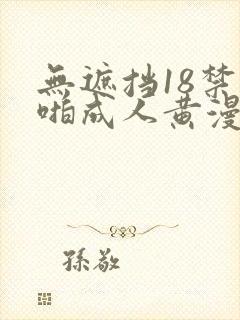 無遮挡18禁
啪成人黄漫
孫敬